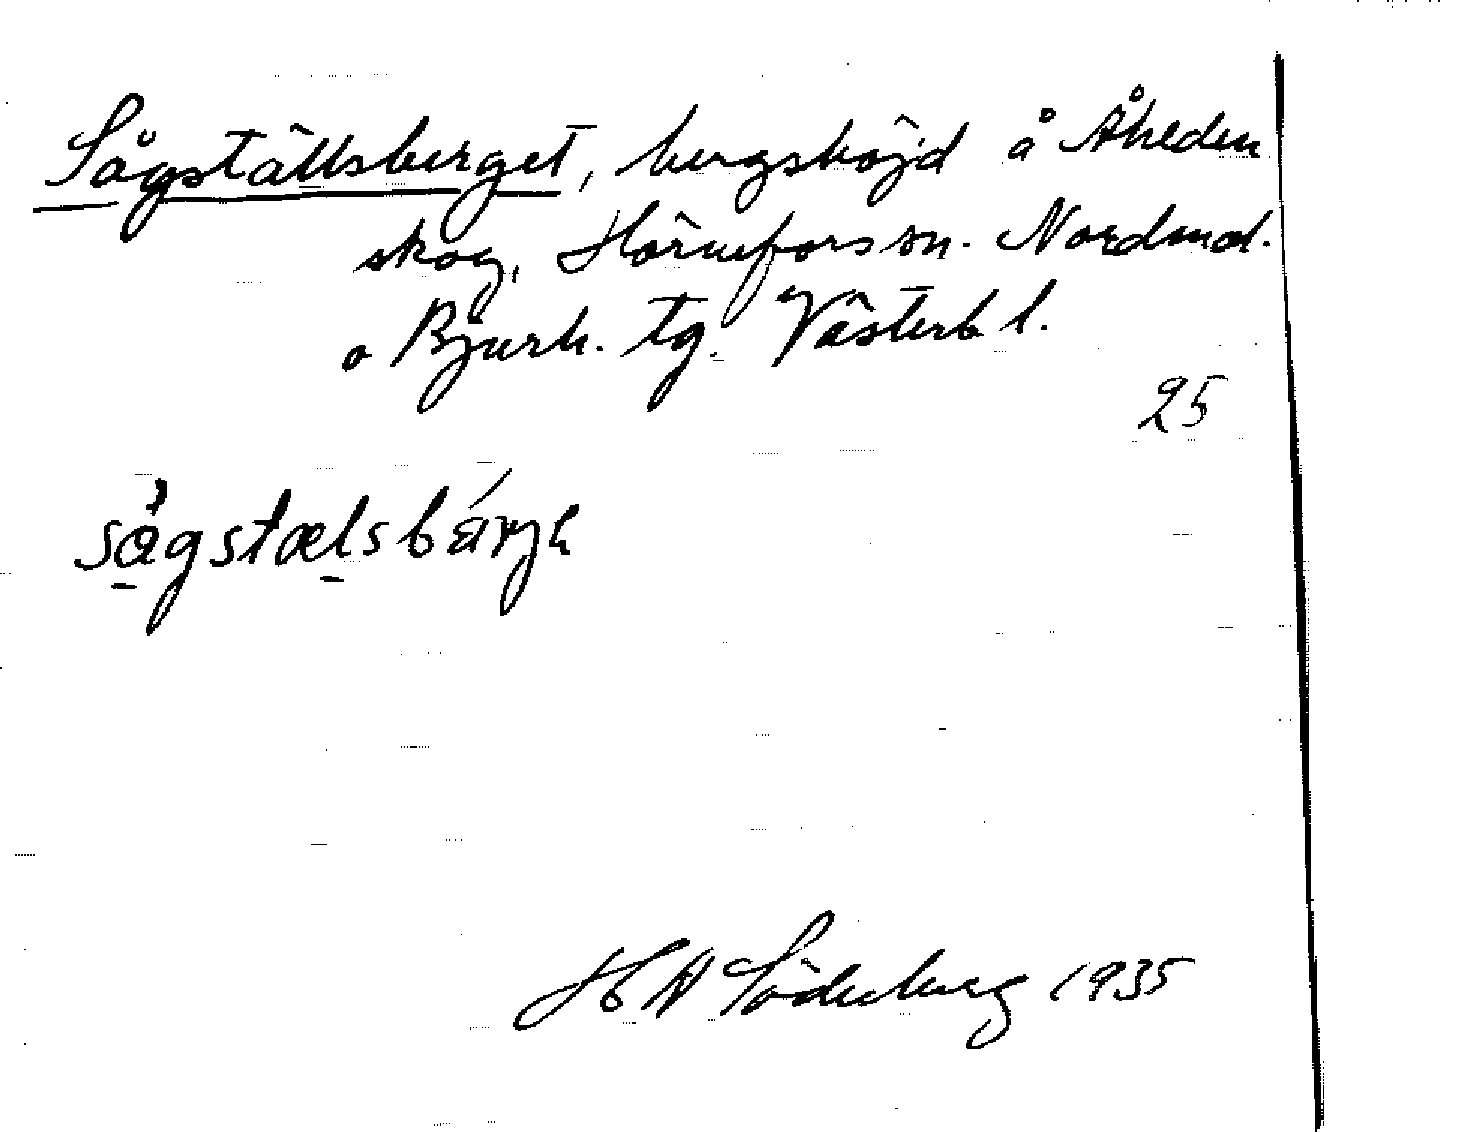 Sågställsberget, bergshöjd å Åheden
skog, Hörnefors sn. Nordmal.
o Bjurh. tg. Västerb l.
25
sågstælsbärjɛ
H A Söderberg 1935